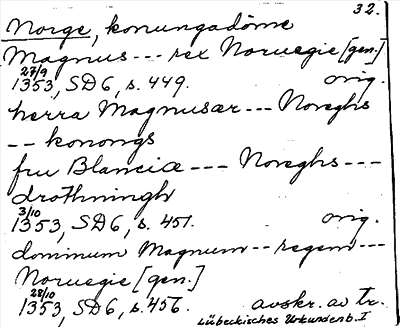 32.
Norge, konungadöme
Magnus --- rex Noruegie [gen.]
27/9
1353, SD6, s. 449. orig.
herra Magnusær --- Noreghs
-- konongs
fru Blanciæ --- Noreghs ---
drothningh
3/10
1353, SD6, s. 451. orig.
dominum Magnum -- regem ---
Noruegie [gen.]
28/10
1353, SD6, s. 456. avskr. av tr.
Lübeckisches Urkundenb. I